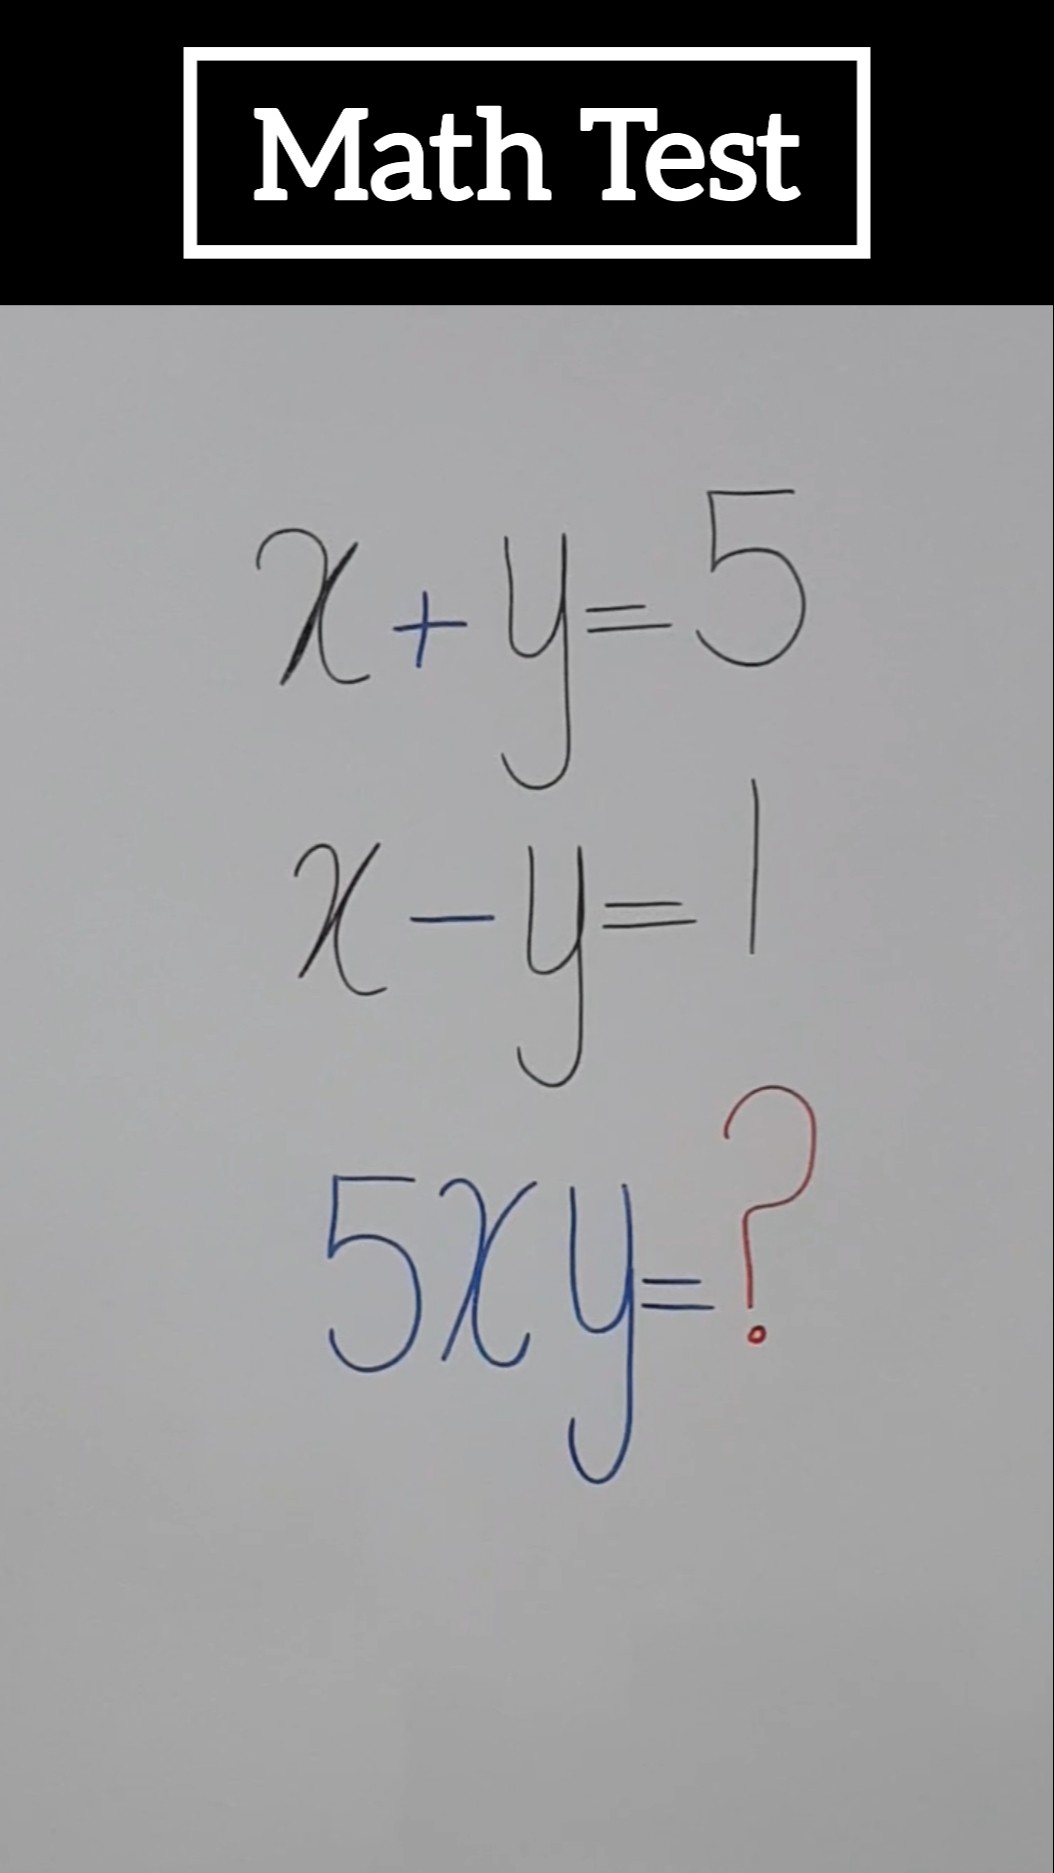 Math Test
x+y=5
x-y=1
5xy=?